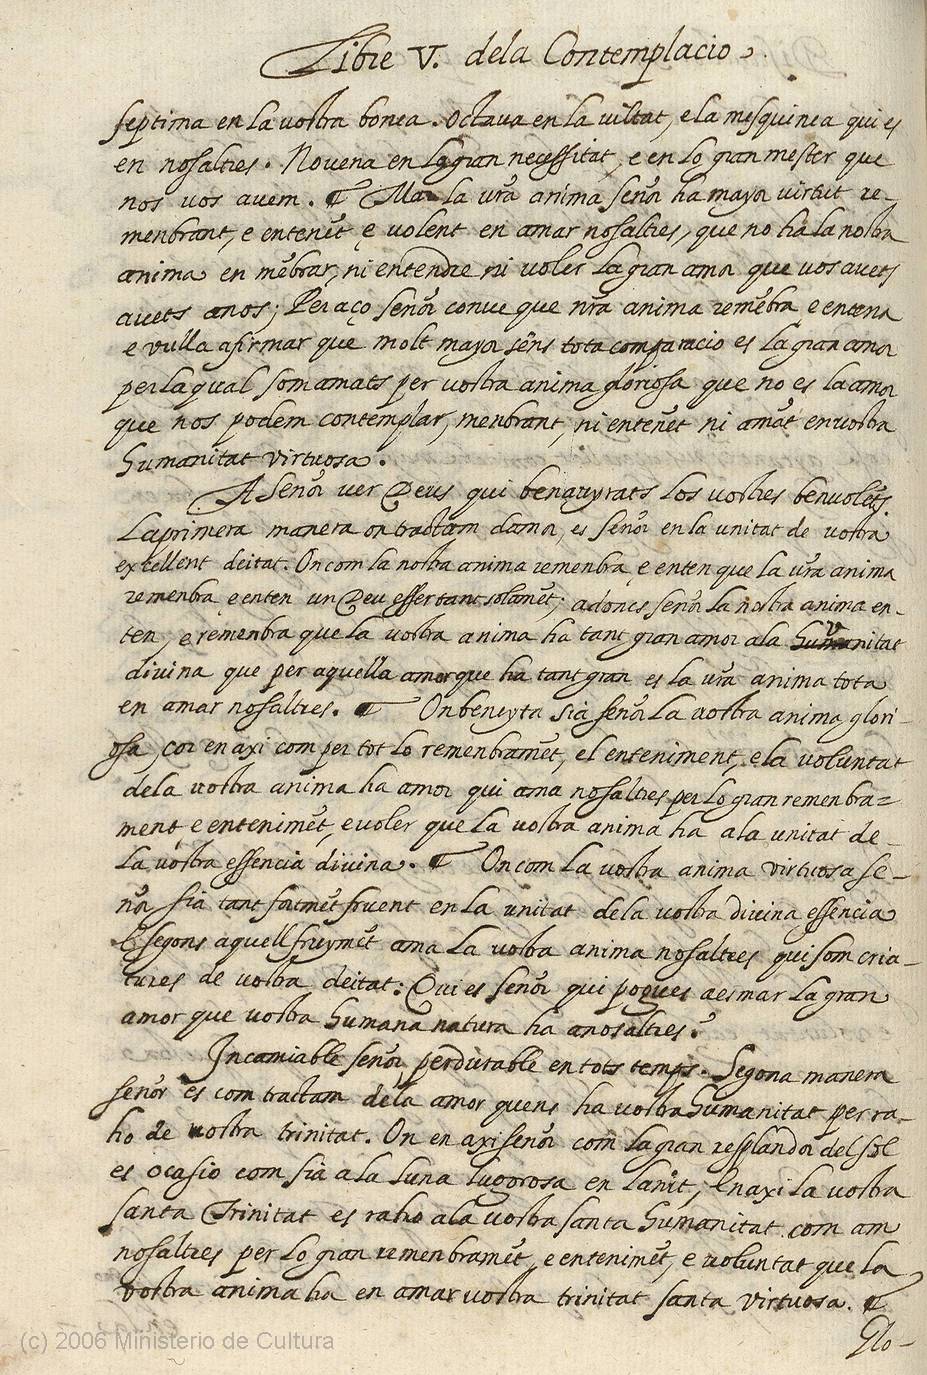 Libre V. dela Contemplacio.
septima en la vostra bonea. Octava en la viltat, e la mesquinea qui es
en nosaltres. Novena en la gran necessitat, e en lo gran mester que
nos vos avem. ¶ Mas la vr̃a anima señor ha mayor virtut re-
menbrant, e entenẽt e volent en amar nosaltres, que no ha la nostra
anima en mẽbrar, ni entendre ni voler la gran amor que vos avets
avets anos; Per aço señor conve que nr̃a anima remẽbra, e entena
e vulla afirmar que molt mayor sẽns tota comparacio es la gran amor
per la qual som amats per vostra anima gloriosa que no es la amor
que nos podem contemplar, menbrant, ni entenẽt ni amãt en vostra
humanitat virtuosa.
A Señor ver Deus qui benauyrats los vostres benvolẽts.
La primera manera on tractam damor, es señor en la unitat de vostra
excellent deitat. On com la nostra anima remenbra, e enten que la vr̃a anima
remenbra, e enten un Deu esser tant solamẽt; adoncs señor la nostra anima en-
ten, e remenbra que la vostra anima ha tant gran amor a la humanitat
divina que per aquella amor que ha tant gran es la vr̃a anima tota
en amar nosaltres. ¶ On beneyta sia señor la vostra anima glori-
osa, cor en axi com per tot lo remenbramẽt, el enteniment, e la voluntat
dela vostra anima ha amor qui ama nosaltres per lo gran remenbra=
ment, e entenimẽt, e voler que la vostra anima ha a la unitat de
la vostra essencia divina. ¶ On com la vostra anima virtuosa se-
ñor sia tant fortmẽt fruent en la unitat dela vostra divina essencia
E segons aquell fruymẽt ama la vostra anima nosaltres qui som cria-
tures de vostra deitat: Qui es señor qui pogues aesmar la gran
amor que vostra humana natura ha anosaltres?
Incamiable señor perdurable en tots temps. Segona manera
señor es com tractam dela amor quens ha vostra humanitat per ra-
ho de vostra trinitat. On en axi señor com la gran resplandor del sol
es ocasio com sia a la luna lugorosa en la nit; Enaxi la vostra
santa Trinitat es raho a la vostra santa humanitat com am
nosaltres per lo gran remenbramẽt, e entenimẽt, e voluntat que la
vostra anima ha en amar vostra trinitat santa virtuosa. ¶
Glo-
(c) 2006 Ministerio de Cultura